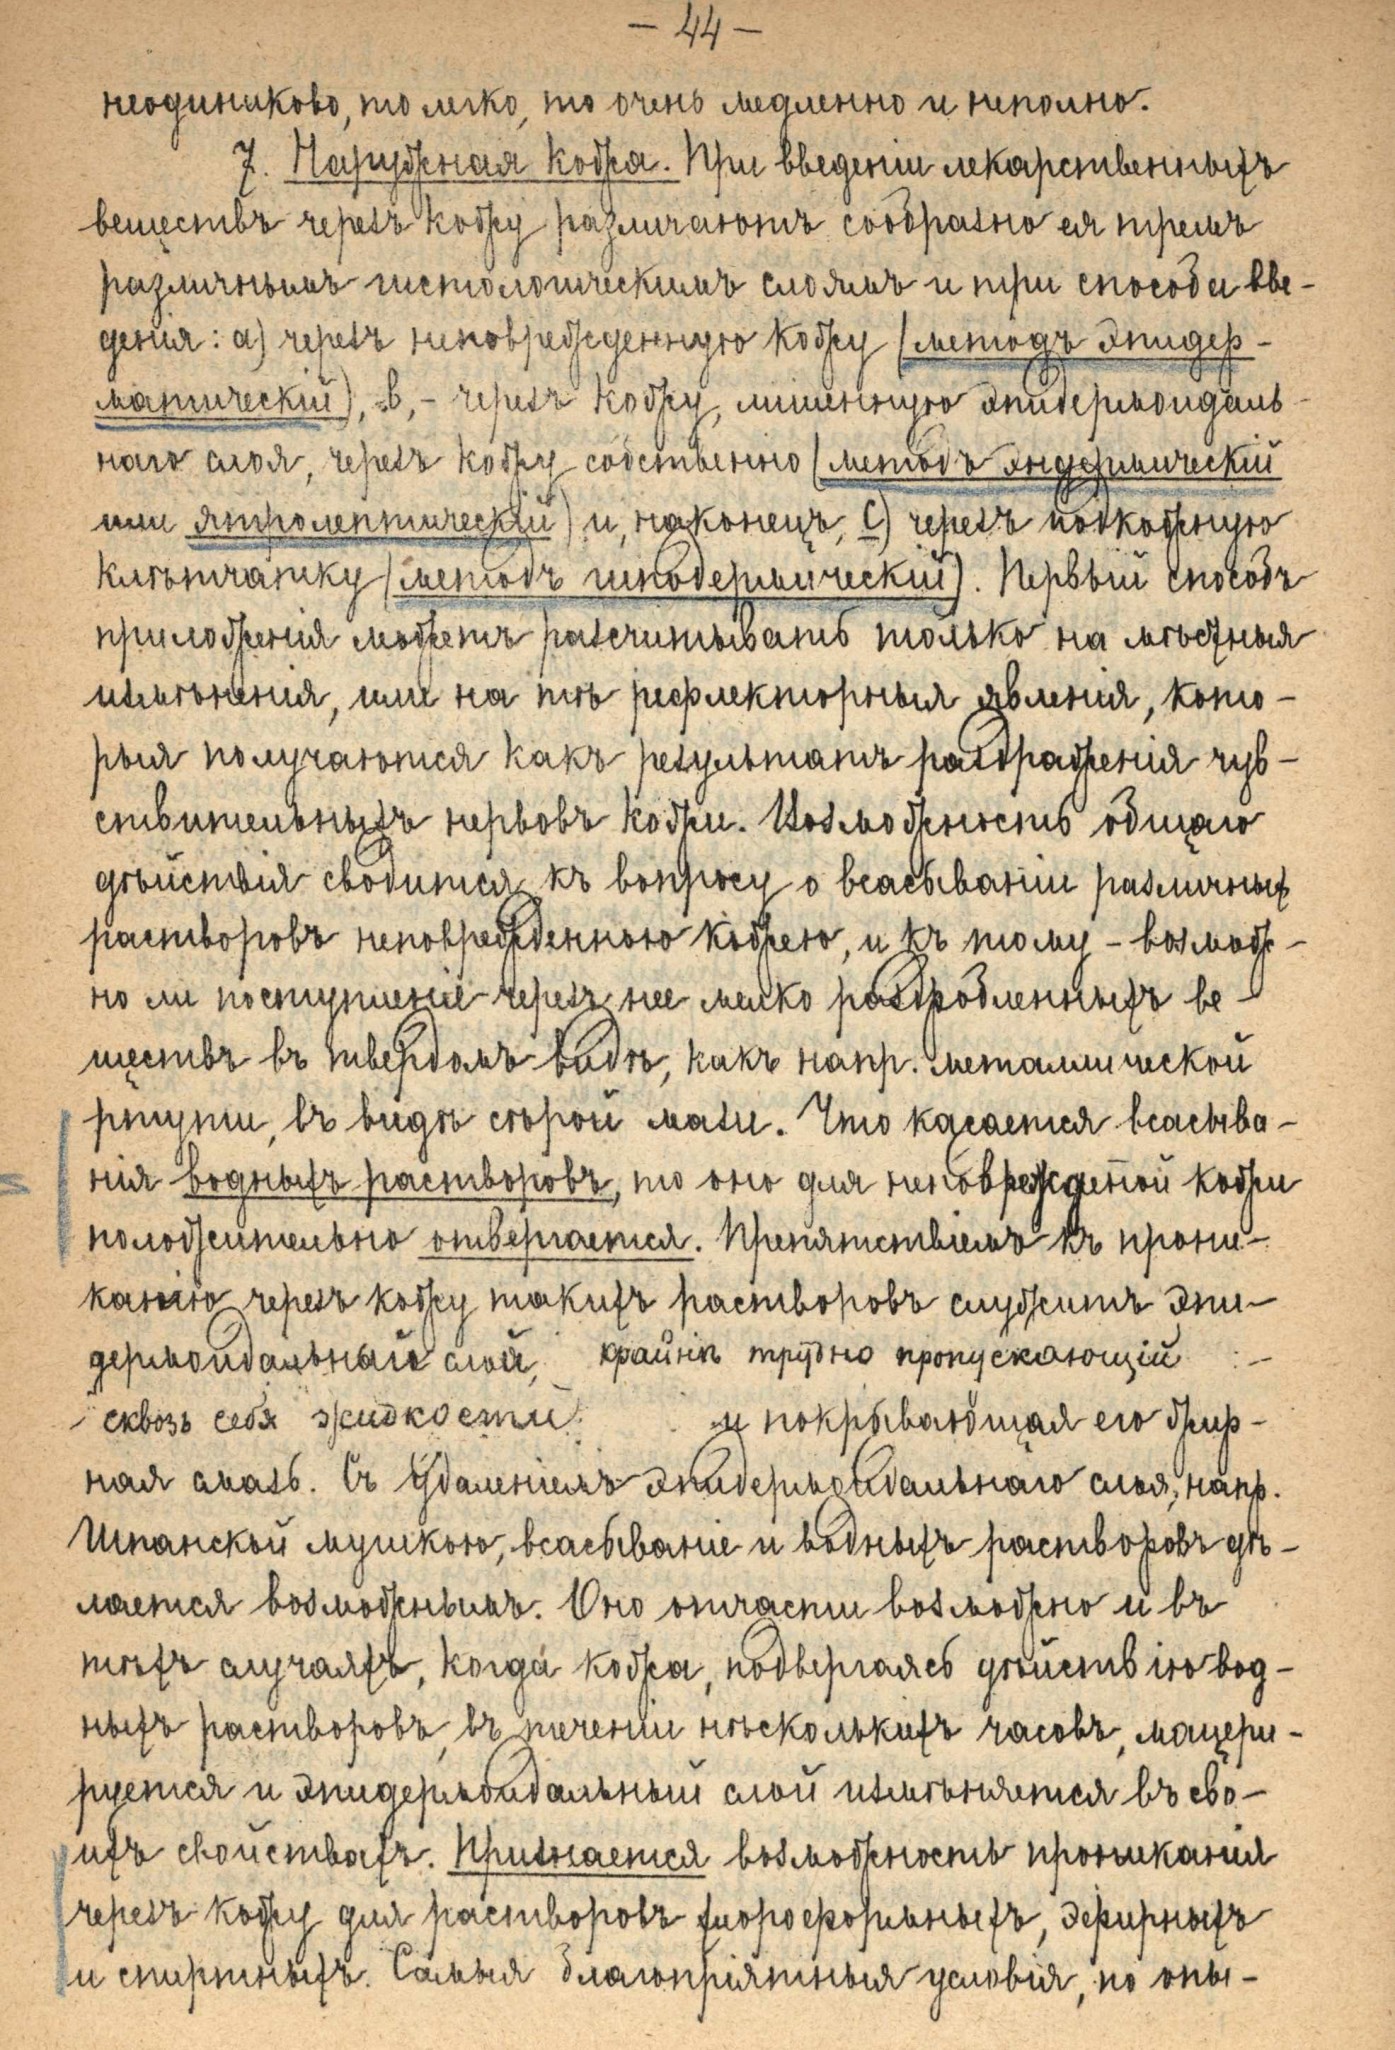 — 44 —
неодинаково, то легко, то очень медленно и неполно.
7. Наружная кожа. При введеніи лекарственныхъ
веществъ черезъ кожу различаютъ сообразно ея тремъ
различнымъ гистологическимъ слоямъ и три способа вве-
денія: а) черезъ неповрежденную кожу (методъ эпидер-
матическій), в,- черезъ кожу, лишенную эпидермоидаль-
наго слоя, черезъ кожу собственно (методъ эндермическій
или ятролептическій) и, наконецъ, с) черезъ подкожную
клѣтчатку (методъ гиподермическій). Первый способъ
приложенія можетъ разсчитывать только на мѣстныя
измѣненія, или на тѣ рефлекторныя явленія, кото-
рыя получаются какъ результатъ раздраженія чув-
ствительныхъ нервовъ кожи. Возможность общаго
дѣйствія сводится къ вопросу о всасываніи различныхъ
растворовъ неповрежденною кожею, и къ тому - возмож-
но ли поступленіе черезъ нее мелко раздробленныхъ ве-
ществъ въ твердомъ видѣ, какъ напр. металлической
ртути, въ видѣ сѣрой мази. Что касается всасыва-
нія водныхъ растворовъ, то оно для неповрежденой кожи
положительно отвергается. Препятствіемъ къ прони-
канію черезъ кожу такихъ растворовъ служитъ эпи-
дермоидальный слой, крайнѣ трудно пропускающій
сквозь себя жидкости и покрывающая его жир-
ная мазь. Съ удаленіемъ эпидермоидальнаго слоя, напр.
Шпанской мушкою, всасываніе и водныхъ растворовъ дѣ-
лается возможнымъ. Оно отчасти возможно и въ
тѣхъ случаяхъ, когда кожа, подвергаясь дѣйствію вод-
ныхъ растворовъ, въ теченіи нѣсколькихъ часовъ, мацери-
руется и эпидермоидальный слой измѣняется въ сво-
ихъ свойствахъ. Признается возможность проникания
черезъ кожу для растворовъ хлороформныхъ, эфирныхъ
и спиртныхъ. Самыя благопріятныя условія, по опы-